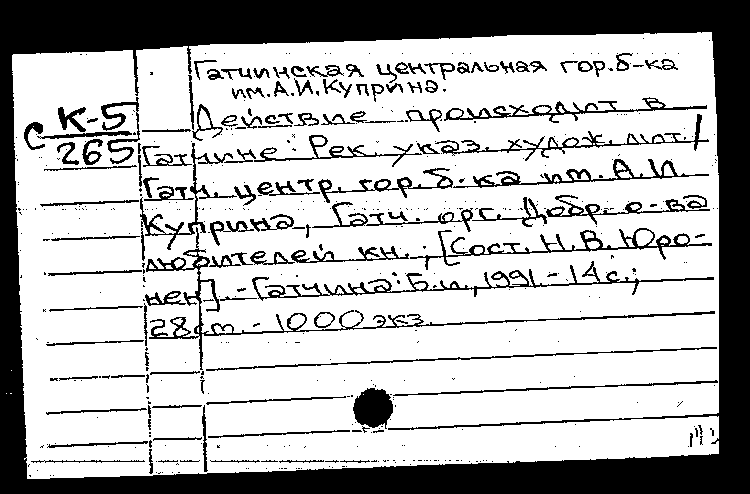 Гатчинская центральная гор. б-ка
им. А.И. Куприна.
Действие происходит в
С К-5
265
Гатчине: Рек. указ. худож. лит. /
Гатч. центр. гор. б-ка им. А.И.
Куприна, Гатч. орг. Добр. о-ва
любителей кн.; [Сост. Н.В. Юро-
нен]. - Гатчина: Б.и., 1991. - 14 с.;
28 cm. - 1000 экз.